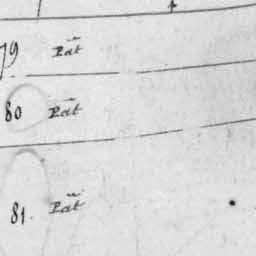 79 Pat
80 Pat
81. Pat